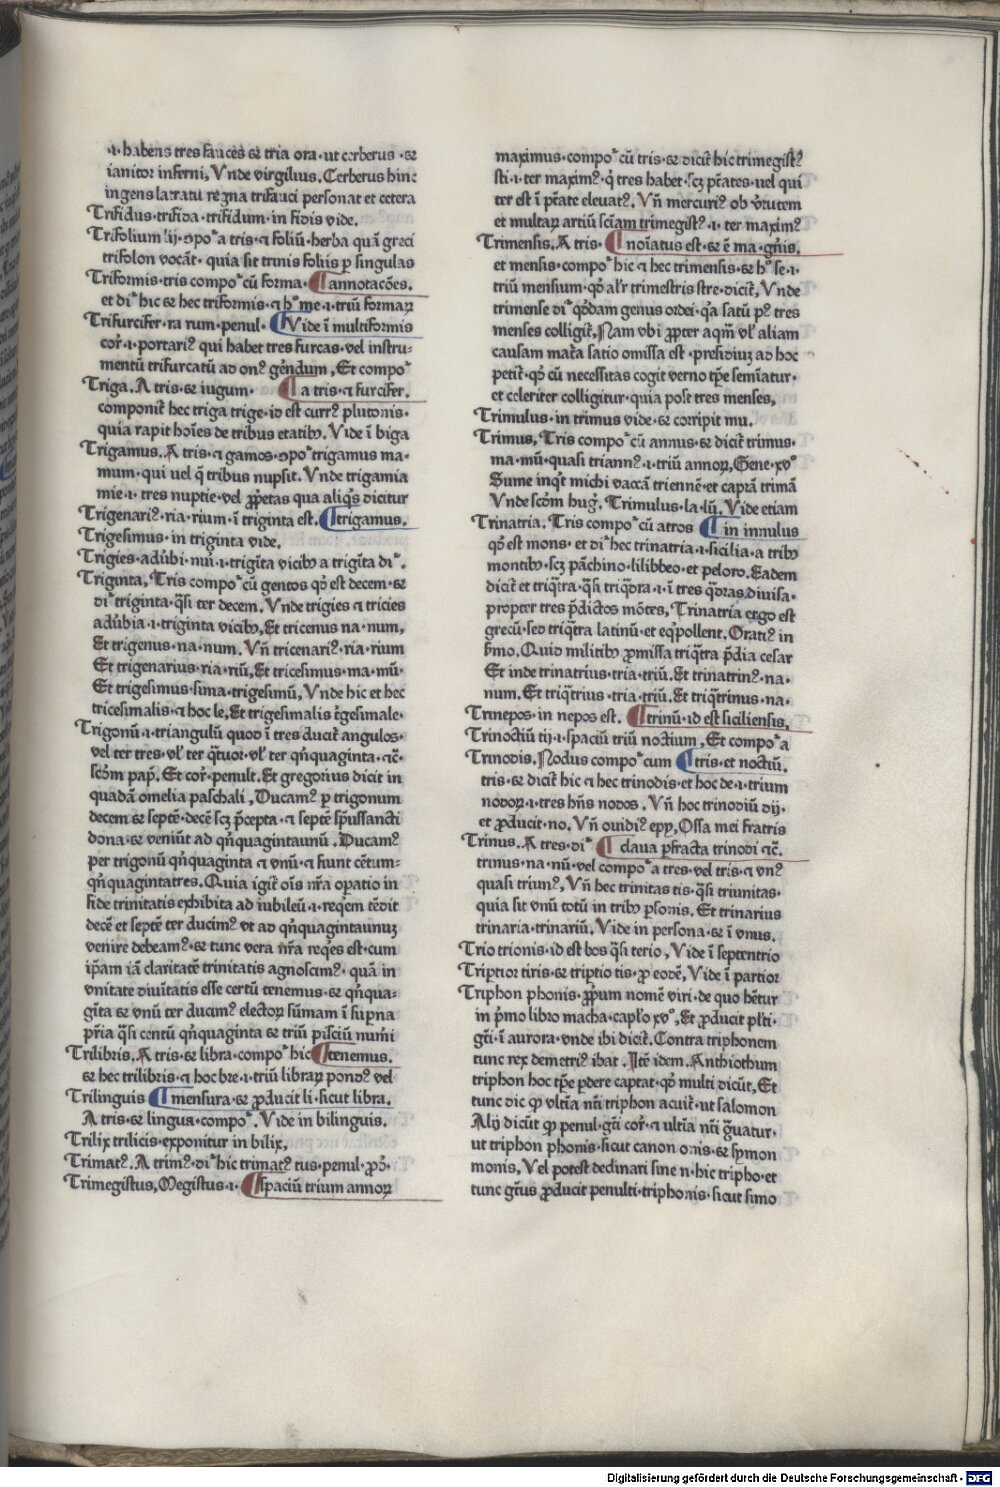 ·i·habens tres fauces et tria ora·ut cerberus·et
ianitor inferni, Vnde virgilius. Cerberus hinc
ingens latratu regna trifauci personat et cetera
Trifidus·trifida·trifidum·in fidis vide.
Trifolium lij·ꝯpoᷓ a tris·⁊ foliū·herba quā greci
trifolon vocāt·quia sit trinis foliis ꝑ singulas
Triformis·tris compoᷓ cū forma· ¶ annotacōes.
et diᷓ hic et hec triformis·⁊ hᵒ me·i·triū formaꝝ
Trifurcifer·ra rum·penul· ¶ Vide ī multiformis
cor̄·i·portariꝰ qui habet tres furcas·vel instru-
mentū trifurcatū ad onꝰ gēndum, Et compoᷓ
Triga. A tris·et iugum· ¶ a tris·⁊ furcifer.
componit̄ hec triga trige·id est currꝰ plutonis·
quia rapit hoīes de tribus etatibꝰ. Vide ī biga
Trigamus. A tris·⁊ gamos·ꝯpoᷓ trigamus ma-
mum·qui uel q̄ tribus nupsit. Vnde trigamia
mie·i·tres nuptie·vel ꝓp̄etas qua aliqͥs dicitur
Trigenariꝰ·ria·rium·ī triginta est. ¶ trigamus.
Trigesimus·in triginta vide.
Trigies·adūbi·nuī·i·trigīta vicibꝰ a trigīta diᷓ.
Triginta, Tris compoᷓ cū gentos qđ est decem·et
diᷓ triginta·q̄si ter decem. Vnde trigies ⁊ tricies
adūbia·i·triginta vicibꝰ, Et tricenus na·num,
Et trigenus·na·num. Vn̄ tricenariꝰ·ria·rium
Et trigenarius·ria·riū, Et tricesimus·ma·mū·
Et trigesimus·sima·trigesimū, Vnde hic et hec
tricesimalis·⁊ hoc le, Et trigesimalis t̄gesimale·
Trigonū·i·triangulū quod ī tres ducit̄ angulos·
vel ter tres·vl̄ ter q̄tuor·vl̄ ter qn̄quaginta·⁊c̄·
scđm pap̄. Et cor̄·penult. Et gregorius dicit in
quadā omelia paschali, Ducamꝰ ꝑ trigonum
decem et septē·decē scꝫ p̄cepta·⁊ septē sp̄ussancti
dona·et veniūt ad qn̄quagintaunū. Ducamꝰ
per trigonū qn̄quaginta ⁊ vnū·⁊ fiunt cētum-
qn̄quagintatres. Quia igit̄ oīs nr̄a opatio in
fide trinitatis exhibita ad iubileū·i·req̄em tēdit
decē et septē ter ducimꝰ vt ad qn̄quagintaunuꝫ
venire debeamꝰ·et tunc vera nr̄a req̄es est·cum
ip̄am iā claritatē trinitatis agnoscimꝰ·quā in
vnitate diuītatis esse certū tenemus·et qn̄qua-
gīta et vnū ter ducimꝰ electoꝝ sūmam ī suꝑna
pr̄ia q̄si centū qn̄quaginta et triū pisciū num̄i
Trilibris. A tris·et libra·compoᷓ hic ¶ tenemus.
et hec trilibris·⁊ hoc bre·i·triū libraꝝ pondꝰ vel
Trilinguis ¶ mensura·et ꝓducit li·sicut libra.
A tris·et lingua·compoᷓ. Vide in bilinguis.
Trilix trilicis·exponitur in bilix,
Trimatꝰ. A trimꝰ·diᷓ hic trimatꝰ tus·penul·ꝓđ·
Trimegistus, Megistus·i· ¶ spaciū trium annoꝝ
maximus·compoᷓ cū tris·et dicit̄ hic trimegistꝰ
sti·i·ter maximꝰ·q̄ tres habet·scꝫ pt̄ates·uel qui
ter est ī pt̄ate eleuatꝰ. Vn̄ mercuriꝰ ob v̄tutem
et multaꝝ artiū sc̄iam trimegistꝰ·i·ter maximꝰ
Trimensis. A tris· ¶ noīatus est·et ē ma·gn̄is.
et mensis·compoᷓ hic ⁊ hec trimensis·et hᵒ se·i·
triū mensium·qđ al'r trimestris stre·dicit̄, Vnde
trimense diᷓ qđdam genus ordei·qͥa satū pꝰ tres
menses colligit̄, Nam vbi ꝓpter aqm̄ vl̄ aliam
causam mat̄a satio omissa est·presidiuꝫ ad hoc
petit̄·qđ cū necessitas cogit verno tꝑe semīatur·
et celeriter colligitur·quia post tres menses,
Trimulus·in trimus vide·et corripit mu.
Trimus, Tris compoᷓ cū annus·et dicit̄ trimus·
ma·mū·quasi triannꝰ·i·triū annoꝝ, Gene·xvᵒ
Sume inqͥt michi vaccā triennē·et caprā trimā
Vnde scđm huḡ. Trimulus·la·lū. Vide etiam
Trinatria. Tris compoᷓ cū atros ¶ in innulus
qđ est mons·et diᷓ hec trinatria·i·sicilia·a tribꝰ
montibꝰ·scꝫ pāchino·lilibbeo·et peloro. Eadem
dicit̄ et triq̄tra·q̄si triq̄dra·i·ī tres q̄dras diuisa·
propter tres p̄dictos mōtes, Trinatria ergo est
grecū·sed triq̄tra latinū·et eqͥpollent. Oratiꝰ in
ẜmo. Quid militibꝰ ꝓmissa triq̄tra p̄dia cesar
Et inde trinatrius·tria·triū. Et trinatrinꝰ·na·
num. Et triq̄trius·tria·triū. Et triq̄trinus·na·
Trinepos·in nepos est. ¶ trinū·id est siciliensis,
Trinoctiū tij·i·spaciū triū noctium, Et compoᷓ a
Trinodis. Nodus compoᷓ cum ¶ tris·et noctiū.
tris·et dicit̄ hic ⁊ hec trinodis·et hoc de·i·trium
nodoꝝ·i·tres hn̄s nodos. Vn̄ hoc trinodiū dij·
et ꝓducit·no. Vn̄ ouidiꝰ epꝑ, Ossa mei fratris
Trinus. A tres·diᷓ ¶ claua ꝑfracta trinodi ⁊c̄.
trinus·na·nū·vel compoᷓ a tres·vel tris·⁊ vnꝰ
quasi triunꝰ, Vn̄ hec trinitas tis·q̄si triunitas·
quia sit vnū totū in tribꝰ ꝑsonis. Et trinarius
trinaria·trinariū. Vide in persona·et ī vnus.
Trio trionis·id est bos q̄si terio, Vide ī septentrio
Triptior tiris·et triptio tis·ꝓ eodē, Vide ī partior
Triphon phonis·ꝓprium nomē viri·de quo hētur
in p̄mo libro macha·capl̄o xvᵒ, Et ꝓducit pl̄ti·
gt̄i·ī aurora·vnde ibi dicit̄. Contra triphonem
tunc rex demetriꝰ ibat. Itē idem. Anthiothum
triphon hoc tꝑe ꝑdere captat·qđ multi dicūt, Et
tunc dic qꝙ vltīa nt̄i triphon acuit̄·ut salomon
Alij dicūt qꝙ penul·gt̄i cor̄·⁊ ultīa nt̄i ḡuatur·
ut triphon phonis·sicut canon onis·et symon
monis, Vel potest declinari sine n·hic tripho·et
tunc gt̄us ꝓducit penulti·triphonis·sicut simo
Digitalisierung gefördert durch die Deutsche Forschungsgemeinschaft - DFG